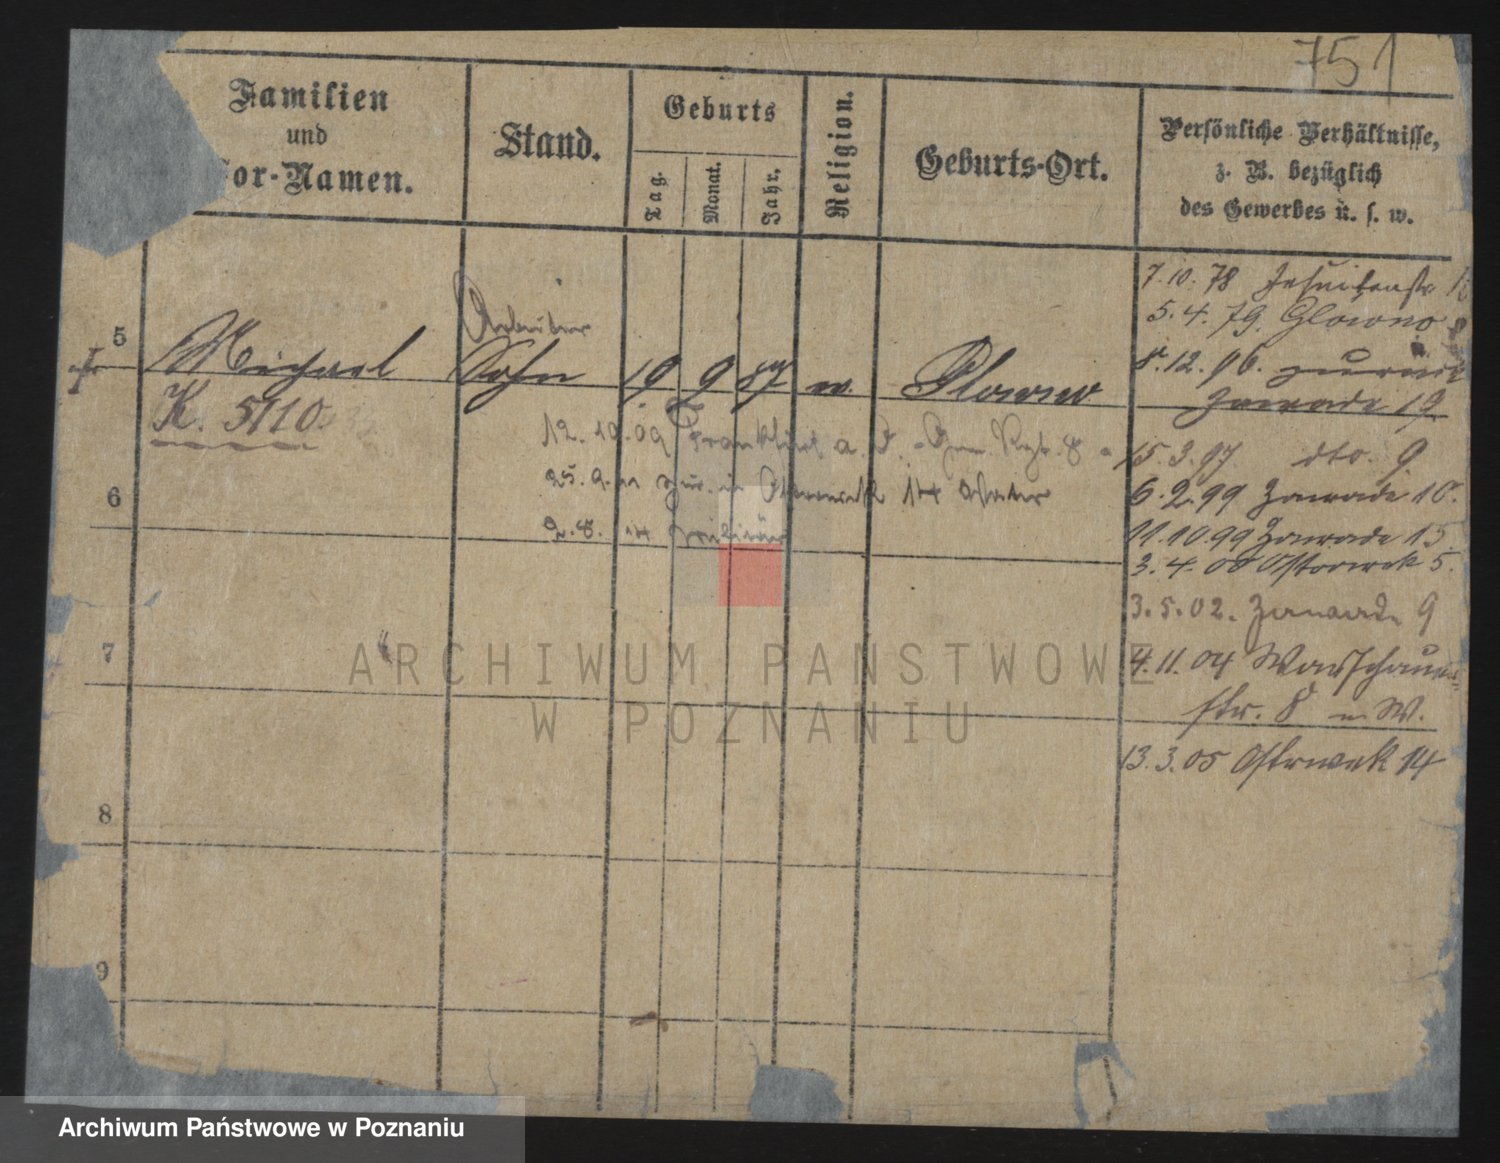 751
Familien
und
or-Namen.
Stand.
Geburts
Tag.
Monat.
Jahr.
Religion.
Geburts-Ort.
Persönliche Verhältnisse,
z. B. bezüglich
des Gewerbes u. s. w.
5
Michael
K. 5110
Arbeiter
Sohn
19 9 87
Glowno
12. 10. 09 Frankfurt a. O.
25. 9. 11 zur. in Ostrowek 14 Vater
2. 8. 14 Militär
7. 10. 78 Jesuitenstr
5. 4. 79. Glowno
8. 12. 96. zurück
Zawade 19
15. 3. 97 dto. 9
6. 2. 99 Zawade 10.
11. 10. 99 Zawade 15
3. 4. 00 Ostrowek 5.
3. 5. 02. Zawade 9
4. 11. 04 Warschauer
str. 8
13. 3. 05 Ostrowek 14
6
7
8
9
ARCHIWUM PAŃSTWOWE
W POZNANIU
Archiwum Państwowe w Poznaniu